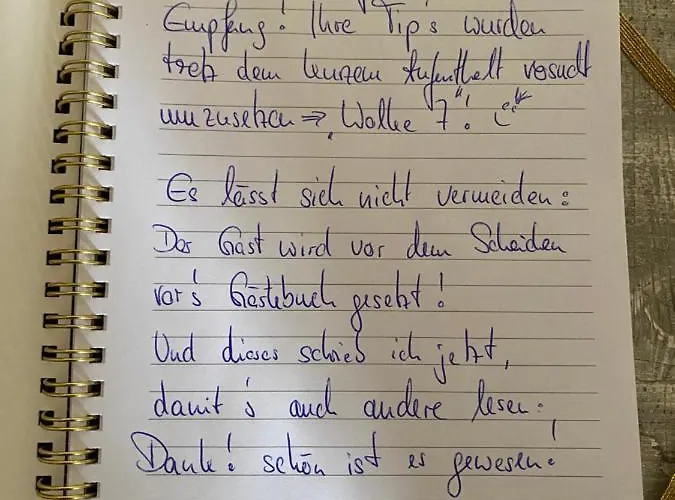 Empfang! Ihre Tips wurden
trotz dem kurzem Aufenthalt versucht
umzusetzen ⇒ „Wolke 7“!
Es lässt sich nicht vermeiden:
Der Gast wird vor dem Scheiden
vor's Gästebuch gesetzt!
Und dieses schrieb ich jetzt,
damit's auch andere lesen:
Danke! schön ist es gewesen!